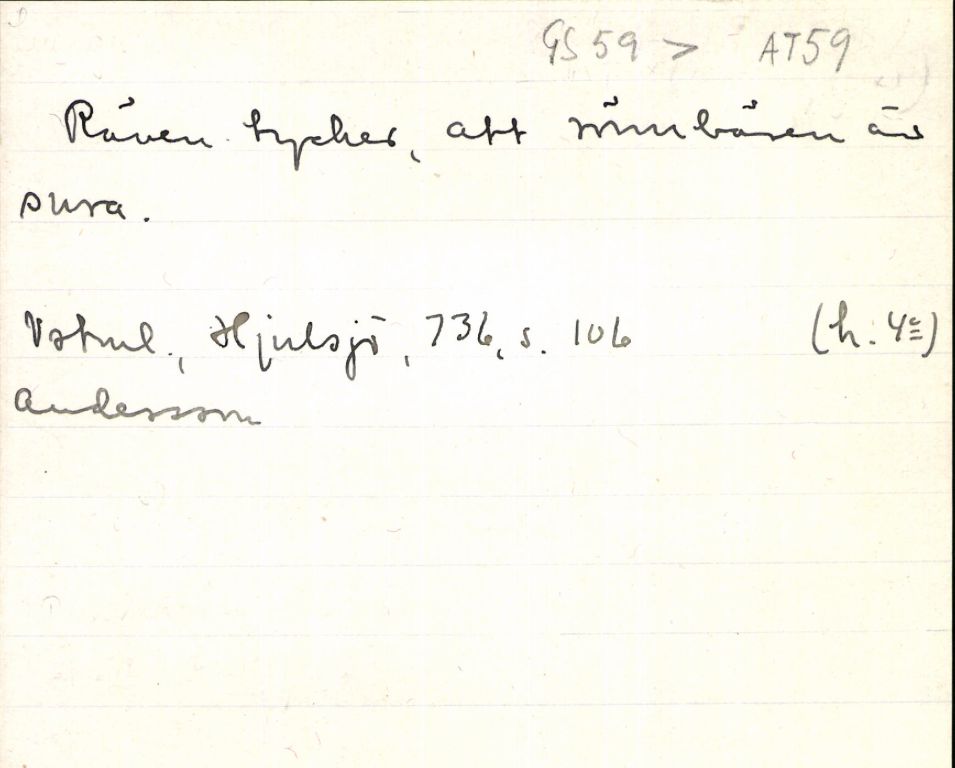 GS 59 > AT59
Räven tycker, att rönnbären är
sura.
Vstml., Hjulsjö, 736, s. 106 (h. 4º)
Andersson